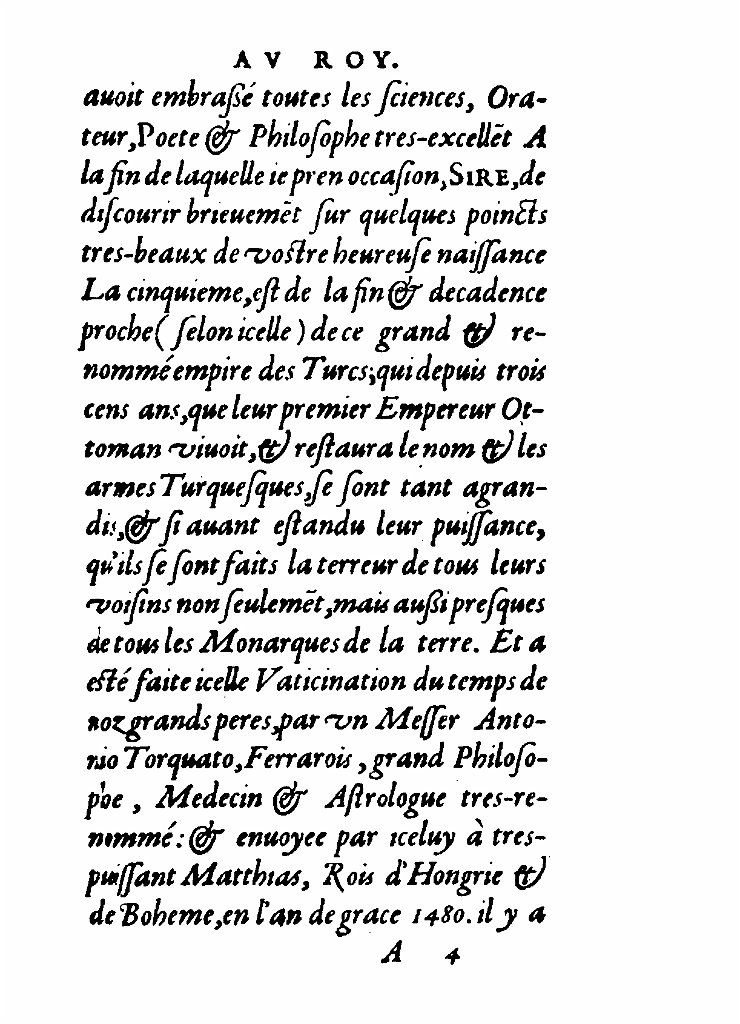 AV ROY.
auoit embraſſé toutes les ſciences, Ora-
teur, Poete & Philoſophe tres-excellēt A
la fin de laquelle ie pren occaſion, SIRE, de
diſcourir brieuemēt ſur quelques poincts
tres-beaux de voſtre heureuſe naiſſance
La cinquieme, eſt de la fin & decadence
proche ( ſelon icelle ) de ce grand & re-
nommé empire des Turcs; qui depuis trois
cens ans, que leur premier Empereur Ot-
toman viuoit, & reſtaura le nom & les
armes Turqueſques, ſe ſont tant agran-
dis, & ſi auant eſtandu leur puiſſance,
qu'ils ſe ſont faits la terreur de tous leurs
voiſins non ſeulemēt, mais auſſi preſques
de tous les Monarques de la terre. Et a
eſté faite icelle Vaticination du temps de
noz grands peres, par vn Meſſer Anto-
nio Torquato, Ferrarois, grand Philoſo-
phe, Medecin & Aſtrologue tres-re-
nommé: & enuoyee par iceluy à tres-
puiſſant Matthias, Rois d'Hongrie &
de Boheme, en l'an de grace 1480. il y a
A 4